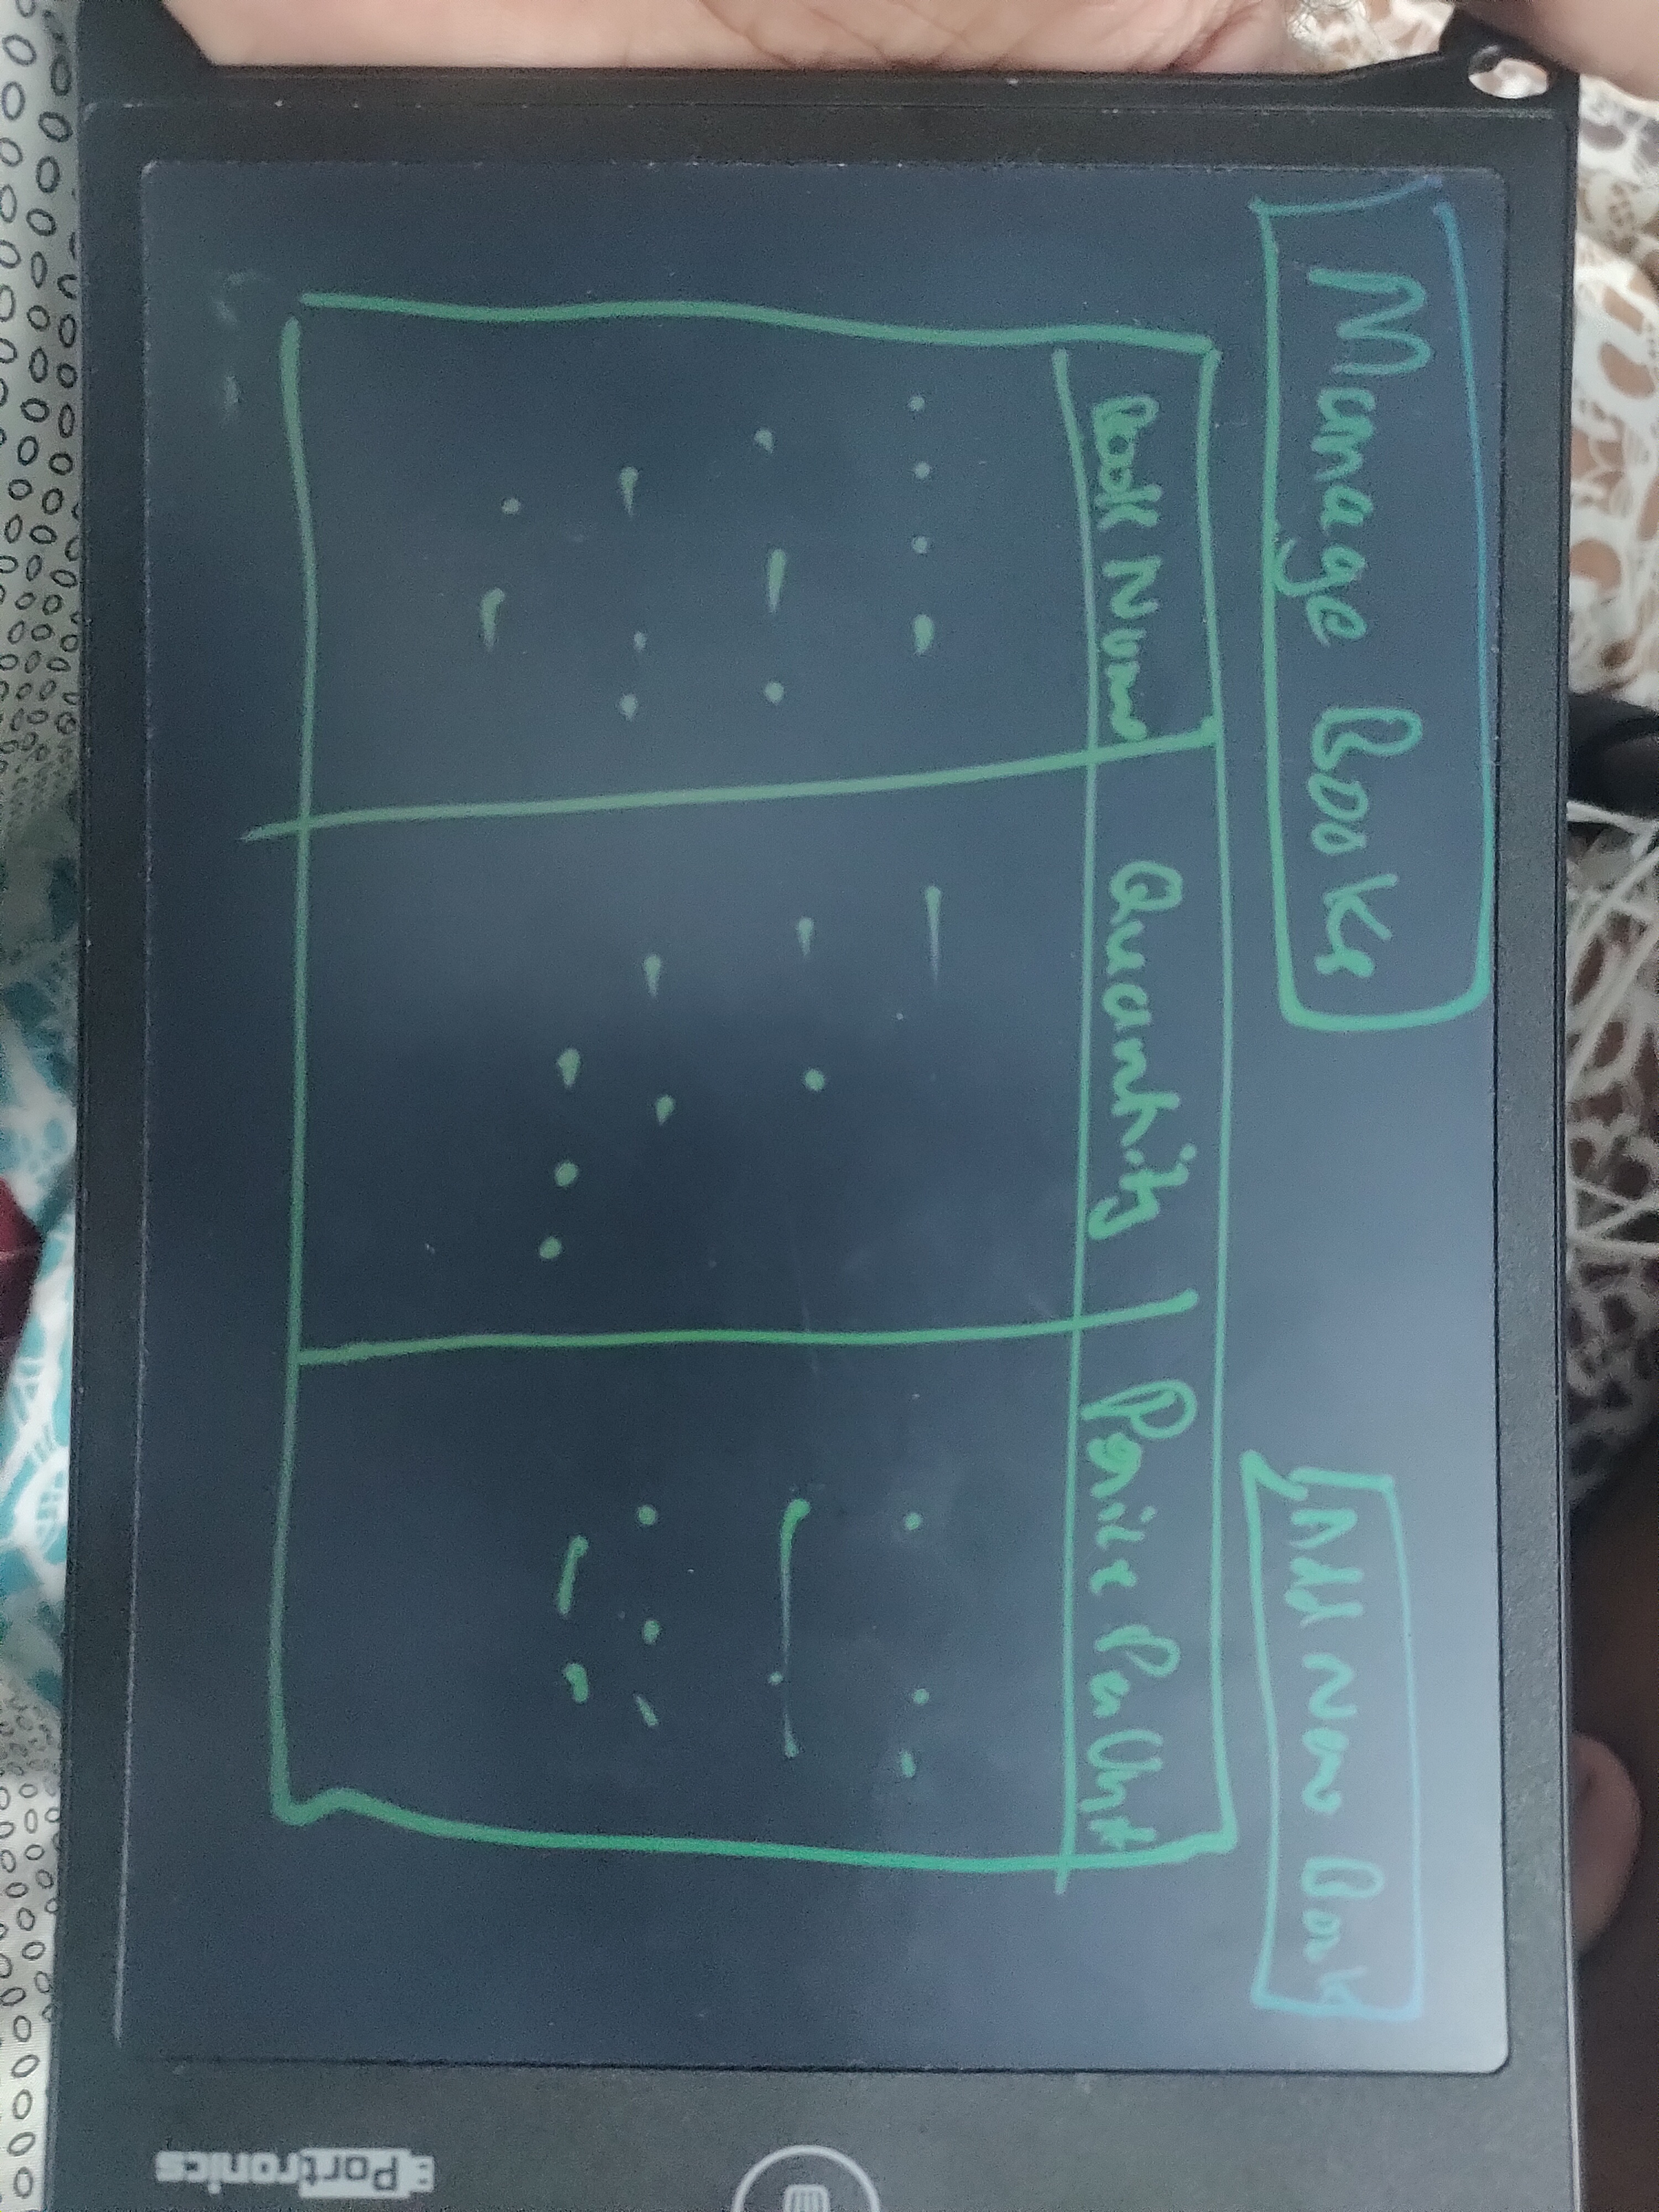 Manage Books
Add New Book
Book Name
Quantity
Price Per Unit
Portronics